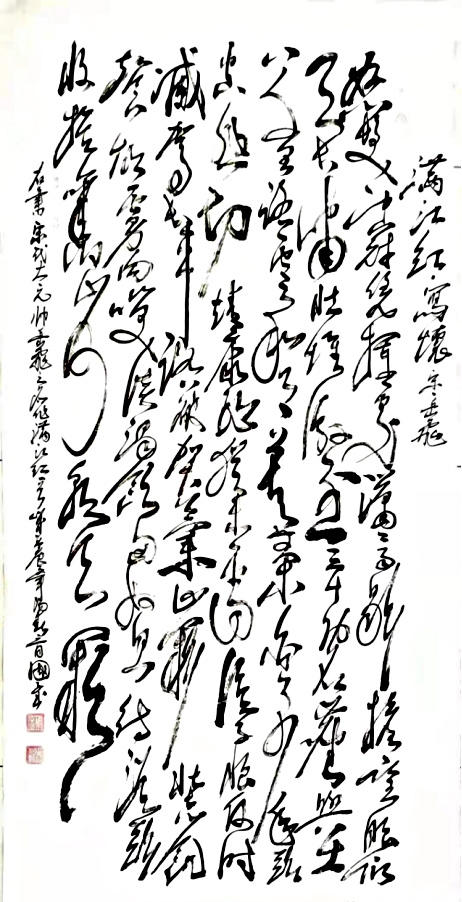 滿江红·寫懷 宋岳飛
怒髮冲冠凭欄處瀟々雨歇抬望眼仰
天長嘯壯懷激烈三十功名塵與土
八千里路雲和月莫等閒白了少年頭
空悲切靖康恥猶未雪臣子恨何時
滅駕長車踏破賀蘭山缺壯志飢
餐胡虜肉笑談渴飲匈奴血待從頭
收拾舊山河朝天闕
右書宋代大元帥岳飛之名作滿江红